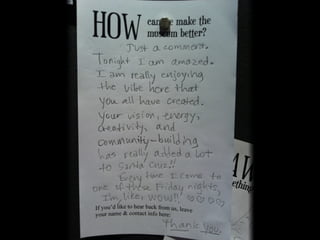 HOW can we make the
museum better?
Just a comment.
Tonight I am amazed.
I am really enjoying
the vibe here that
you all have created.
Your vision, energy,
creativity, and
community-building
has really added a lot
to Santa Cruz!!
Every time I come to
one of these Friday nights,
I'm like, WOW!! ♡♡♡♡
If you'd like to hear back from us, leave
your name & contact info here!
Thank you.
W
ething